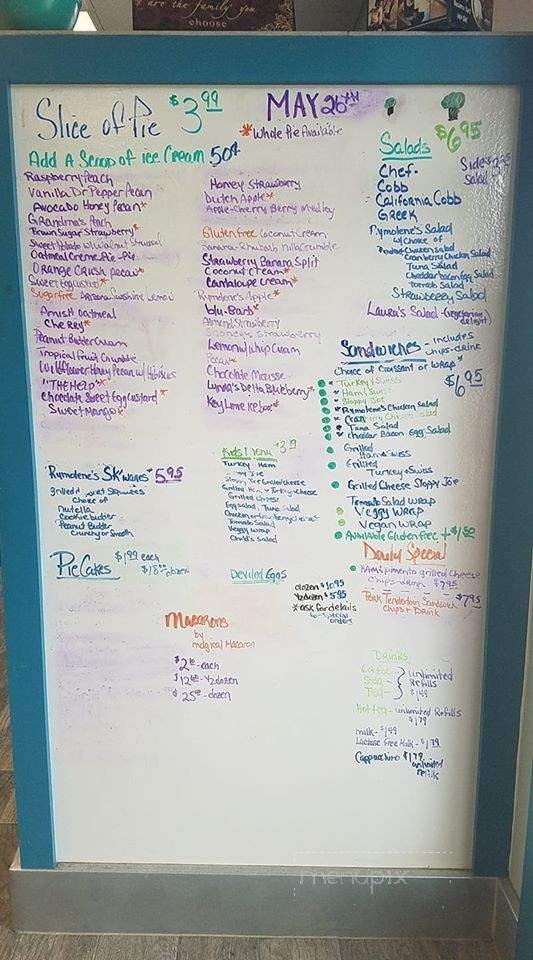 are the family you
choose
Slice of Pie $3.99
MAY 26TH
*Whole Pie Available
Add A Scoop of ice Cream 50¢
Raspberry Peach
Vanilla Dr Pepper Pecan
Avocado Honey Pecan*
Grandma's Peach
Brown Sugar Strawberry*
Sweet Potato w/Walnut Streusel
Oatmeal Creme Pie-Pie
Orange Crush Pecan*
Sweet Egg Custard*
Sugarfree Arizona Sunshine Lemon
Amish Oatmeal
Cherry*
Peanut Butter Cream
Tropical Fruit Crumble
Wildflower Honey Pecan w/Hibiscus
"THE Help"*
Chocolate Sweet Egg Custard*
Sweet Mango*
Honey Strawberry
Dutch Apple*
Apple-Cherry Berry Medley
Gluten Free Coconut Cream
Banana-Rhubarb Milk Crumble
Strawberry Banana Split
Coconut Cream*
Cantaloupe Cream*
Rymolene's Apple*
Blu-Barb*
Almond Strawberry
Strawberry
Lemon w/Whip Cream
Pecan*
Chocolate Mousse
Lynda's Delta Blueberry*
Key Lime Ice box*
Salads $6.95
Side Salad
Chef
Cobb
California Cobb
Greek
Rymolene's Salad
w/choice of
Chicken Salad
Cranberry Chicken Salad
Tuna Salad
Cheddar Bacon Egg Salad
Tomato Salad
Strawberry Salad
Laura's Salad (vegetarian delight)
Sandwiches - includes chips + drink
Choice of Croissant or Wrap* $6.95
* Turkey & Swiss
* Ham & Swiss
* Sloppy Joe
* Rymolene's Chicken Salad
* Cran Chicken Salad
* Tuna Salad
* Cheddar Bacon Egg Salad
Grilled
Ham & Swiss
Grilled
Turkey & Swiss
Grilled Cheese Sloppy Joe
Tomato Salad Wrap
Veggy Wrap
Vegan Wrap
Available Gluten Free +$1.50
Rymolene's SK'wiches $5.95
grilled
choice of
Nutella
Cookie butter
Peanut Butter
Crunchy or Smooth
Kids Menu
Turkey - Ham
Grilled Cheese
Egg Salad, Tuna Salad
Tomato Salad
Veggy Wrap
Chef's Salad
Pie Cakes $1.99 each
dozen
Deviled Eggs
dozen $10.95
1/2 dozen $5.95
*ask for details
special orders
Daily Special
Ham & pimento grilled Cheese
Chips + drink $7.95
Pork Tenderloin Sandwich $7.95
Chips + Drink
Macarons
by
magical Macaron
each
1/2 dozen
dozen
Drinks
Coffee
Soda
Tea
unlimited Refills
$1.49
Hot tea - unlimited Refills
$1.79
milk - $1.49
Lactose Free Milk - $1.79
Cappuccino $1.79
unlimited refills
menupix